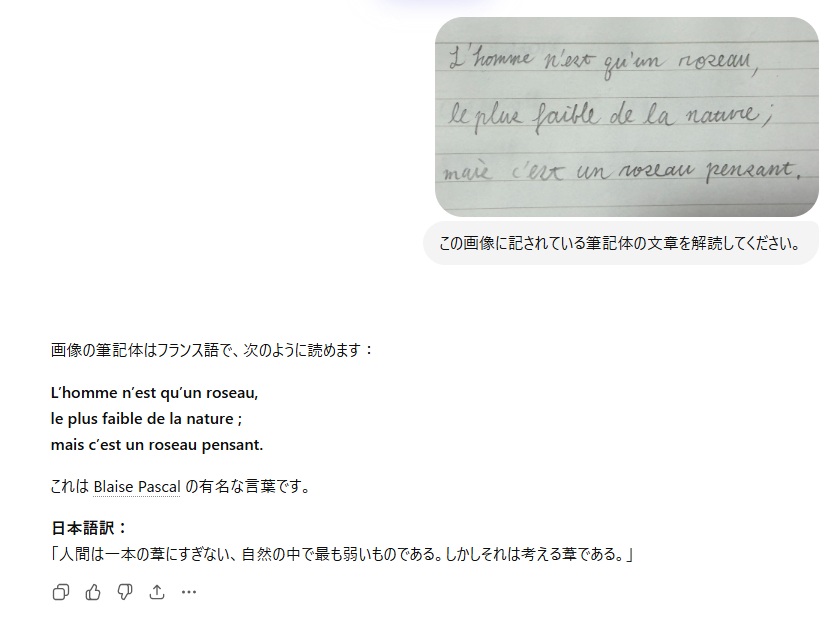 L'homme n'est qu'un roseau,
le plus faible de la nature;
mais c'est un roseau pensant.
この画像に記されている筆記体の文章を解読してください。
画像の筆記体はフランス語で、次のように読めます：
L’homme n’est qu’un roseau,
le plus faible de la nature ;
mais c’est un roseau pensant.
これは Blaise Pascal の有名な言葉です。
日本語訳：
「人間は一本の葦にすぎない、自然の中で最も弱いものである。しかしそれは考える葦である。」